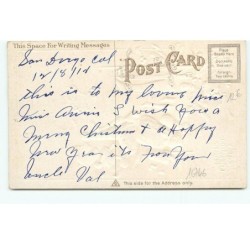 This Space For Writing Messages
POST CARD
San Diego Cal
12/8/12
this is to my loving
Miss Annie I wish you a
Merry Christmas & a Happy
New Year its from your
Uncle Val
The side for the Address only